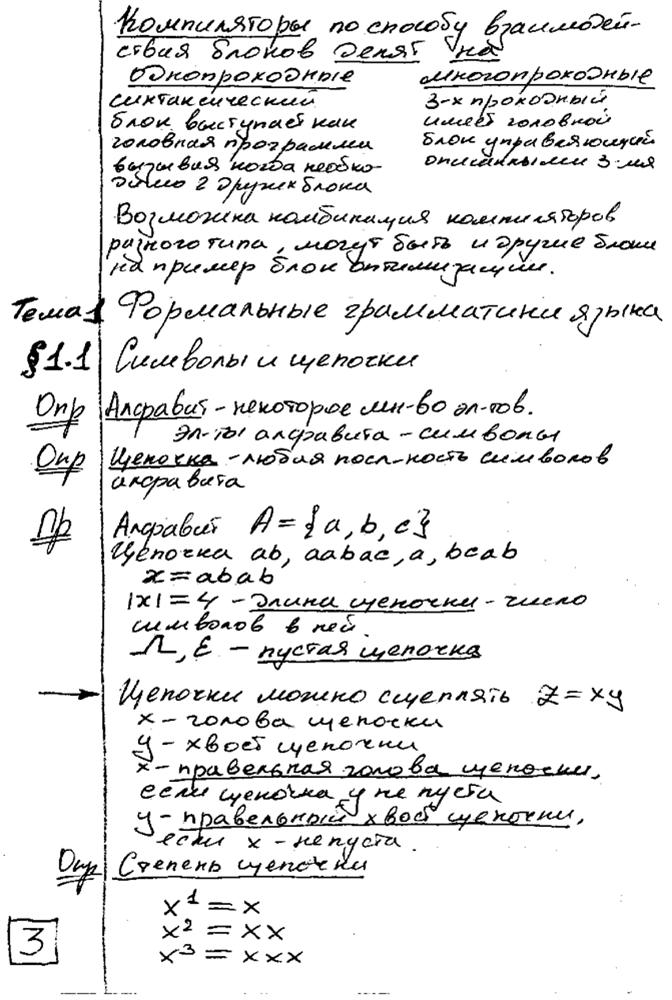 Компиляторы по способу взаимодей-
ствия блоков делят на
однопроходные
синтаксический
блок выступает как
головная программа
вызывая когда необхо-
димо 2 других блока
многопроходные
3-х проходный
имеет головной
блок управляющий
описанными 3-мя
Возможна комбинация компиляторов
разного типа, могут быть и другие блоки
на пример блок оптимизации.
Тема 1 Формальные грамматики языка
§1.1 Символы и цепочки
Опр Алфавит - некоторое мн-во эл-тов.
Эл-ты алфавита - символы
Опр Цепочка - любая посл-ность символов
алфавита
Пр Алфавит A = {a, b, c}
Цепочка ab, aabac, a, bcab
x = abab
|x| = 4 - длина цепочки - число
символов в ней.
Λ, ε - пустая цепочка
→ Цепочки можно сцеплять z = xy
x - голова цепочки
y - хвост цепочки
x - правельная голова цепочки,
если цепочка y не пуста
y - правельный хвост цепочки,
если x - не пуста.
Опр Степень цепочки
x¹ = x
x² = xx
x³ = xxx
3